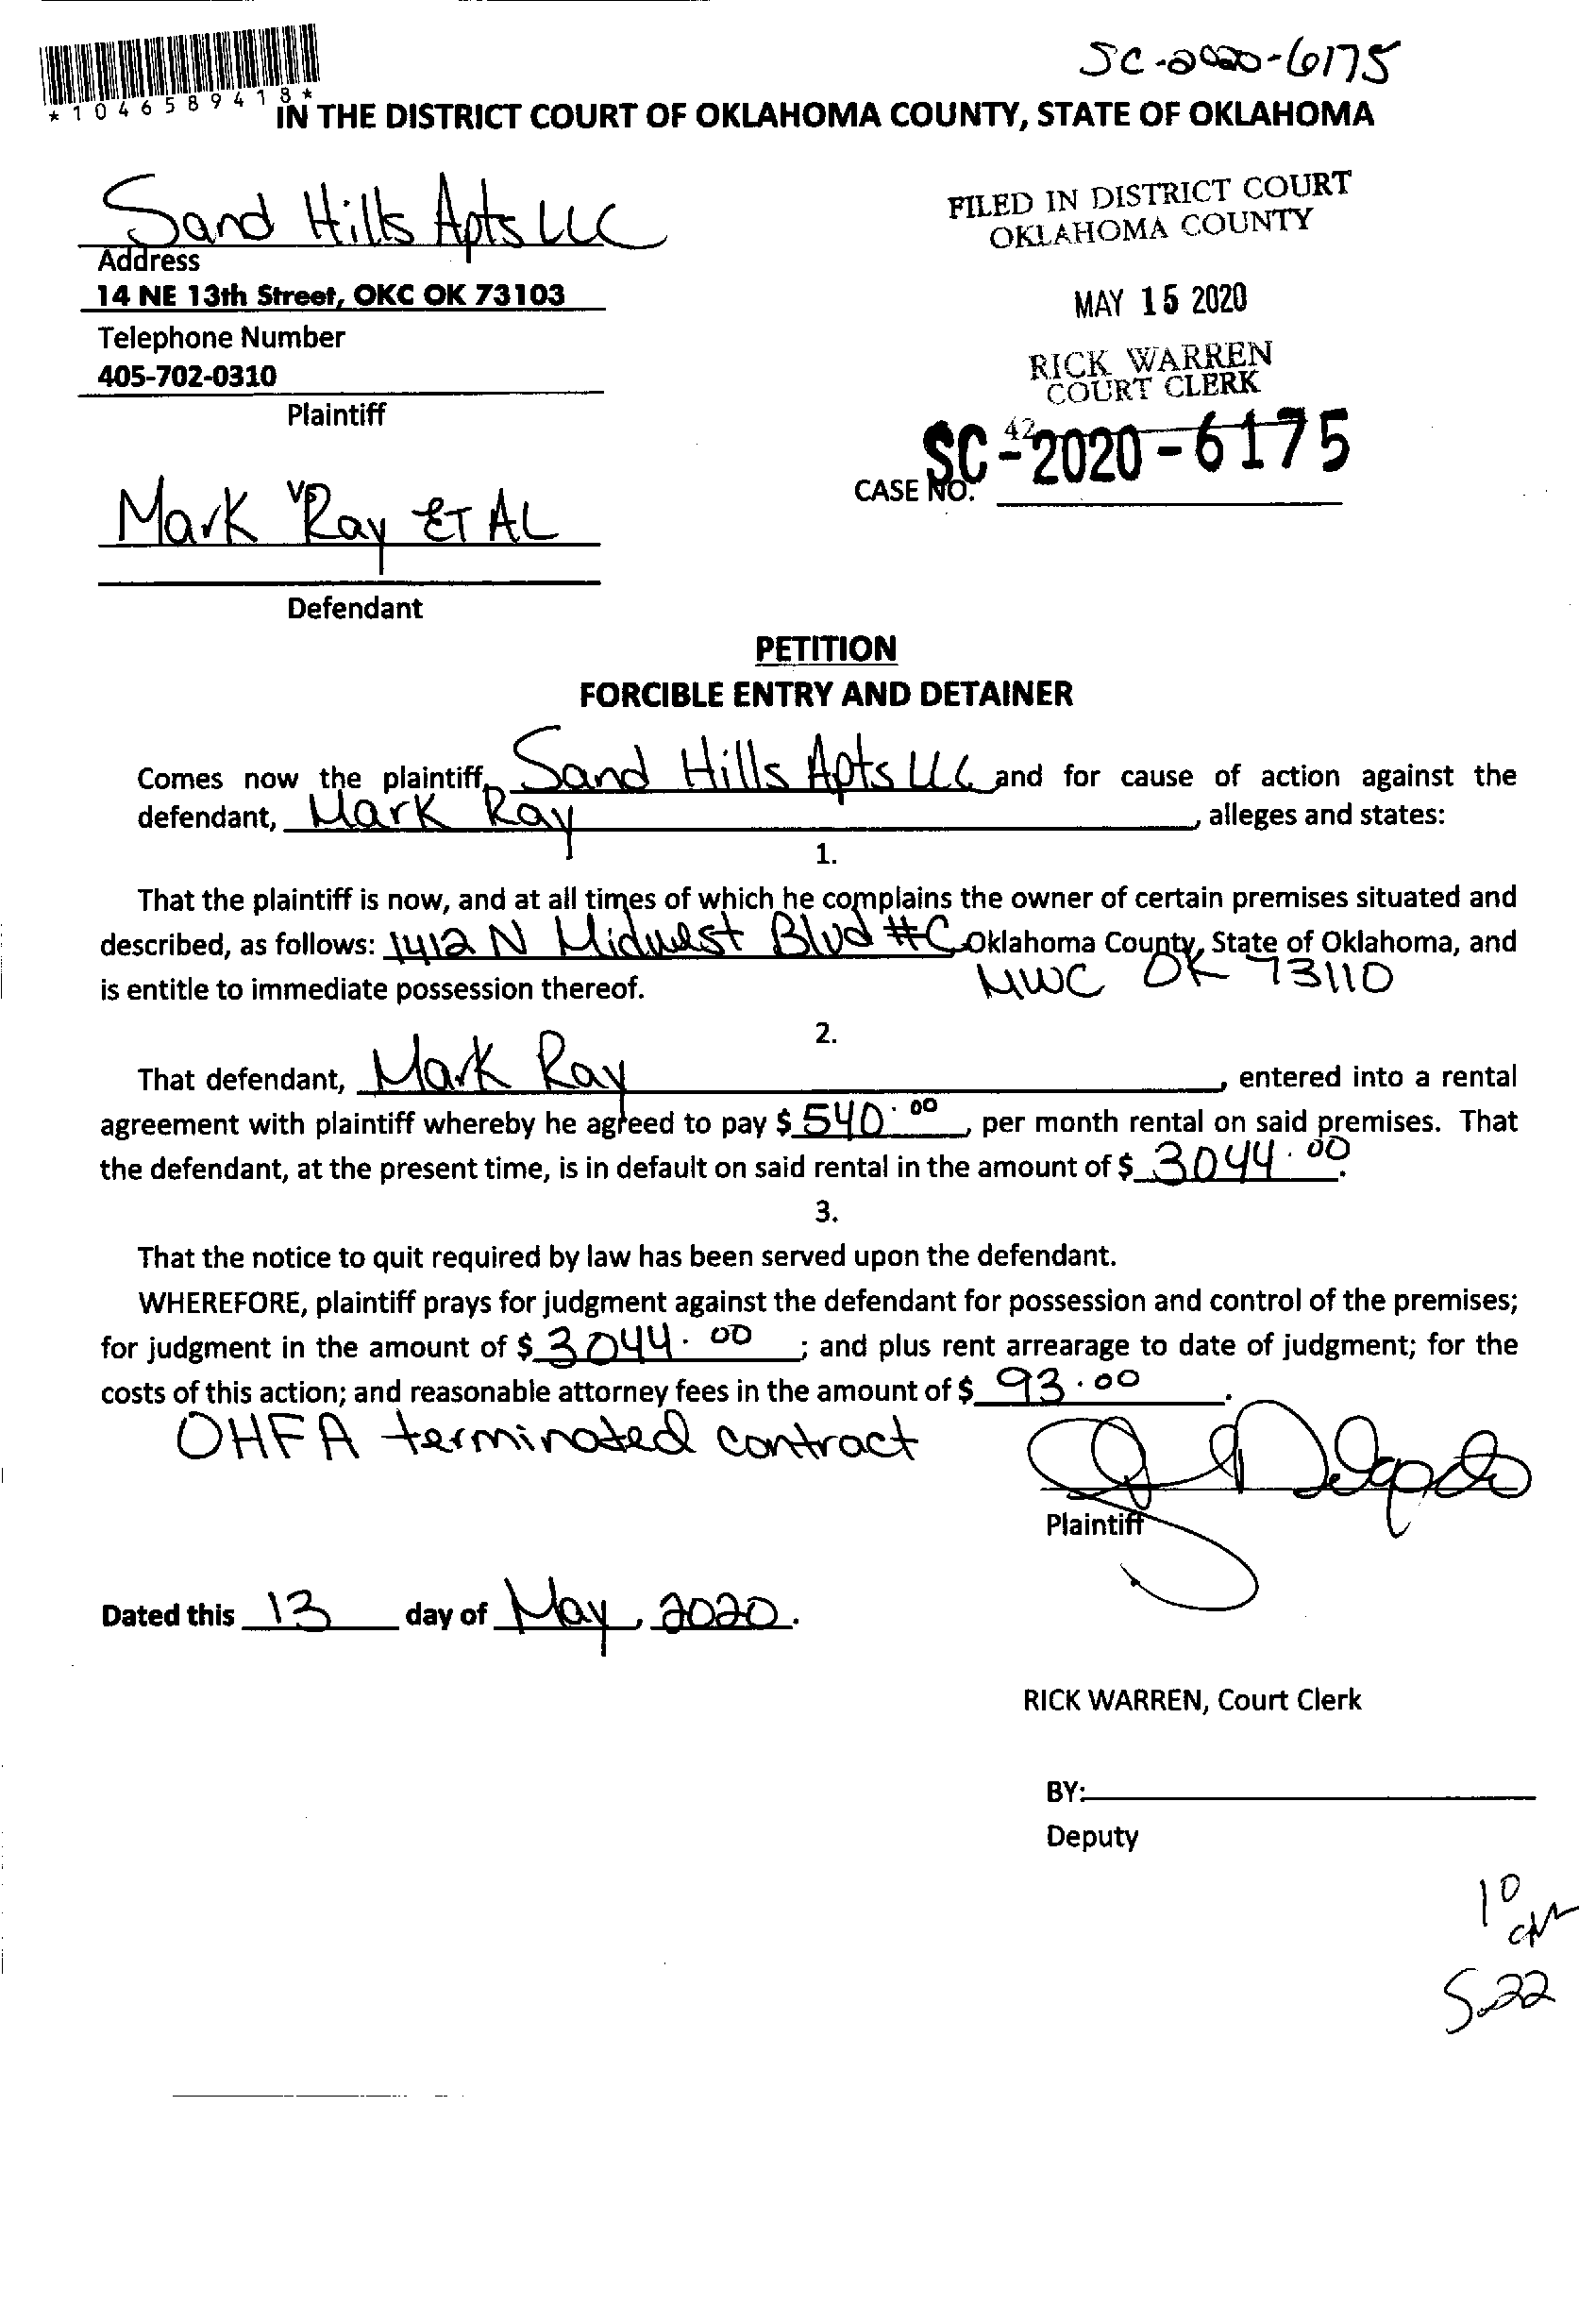 SC-2020-6175
*1046589418*
IN THE DISTRICT COURT OF OKLAHOMA COUNTY, STATE OF OKLAHOMA
Sand Hills Apts LLC
Address
14 NE 13th Street, OKC OK 73103
Telephone Number
405-702-0310
Plaintiff
FILED IN DISTRICT COURT
OKLAHOMA COUNTY
MAY 15 2020
RICK WARREN
COURT CLERK
42
CASE NO. SC-2020-6175
vs
Mark Ray ET AL
Defendant
PETITION
FORCIBLE ENTRY AND DETAINER
Comes now the plaintiff, Sand Hills Apts LLC and for cause of action against the
defendant, Mark Ray, alleges and states:
1.
That the plaintiff is now, and at all times of which he complains the owner of certain premises situated and
described, as follows: 1412 N Midwest Blvd #C Oklahoma County, State of Oklahoma, and
MWC OK 73110
is entitle to immediate possession thereof.
2.
That defendant, Mark Ray, entered into a rental
agreement with plaintiff whereby he agreed to pay $ 540.00, per month rental on said premises. That
the defendant, at the present time, is in default on said rental in the amount of $ 3044.00.
3.
That the notice to quit required by law has been served upon the defendant.
WHEREFORE, plaintiff prays for judgment against the defendant for possession and control of the premises;
for judgment in the amount of $ 3044.00; and plus rent arrearage to date of judgment; for the
costs of this action; and reasonable attorney fees in the amount of $ 93.00.
OHFA terminated contract
Delgado
Plaintiff
Dated this 13 day of May, 2020.
RICK WARREN, Court Clerk
BY:
Deputy
10
5-22